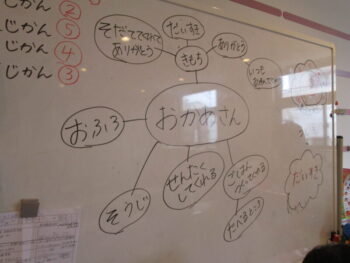 じかん ②
じかん ⑤
じかん ④
じかん ③
そだててくれて
ありがとう
だいすき
ありがとう
きもち
いつも
おかあさん
おふろ
そうじ
せんたく
してくれる
ごはん
つくってくれる
たべるとこ
だいすき